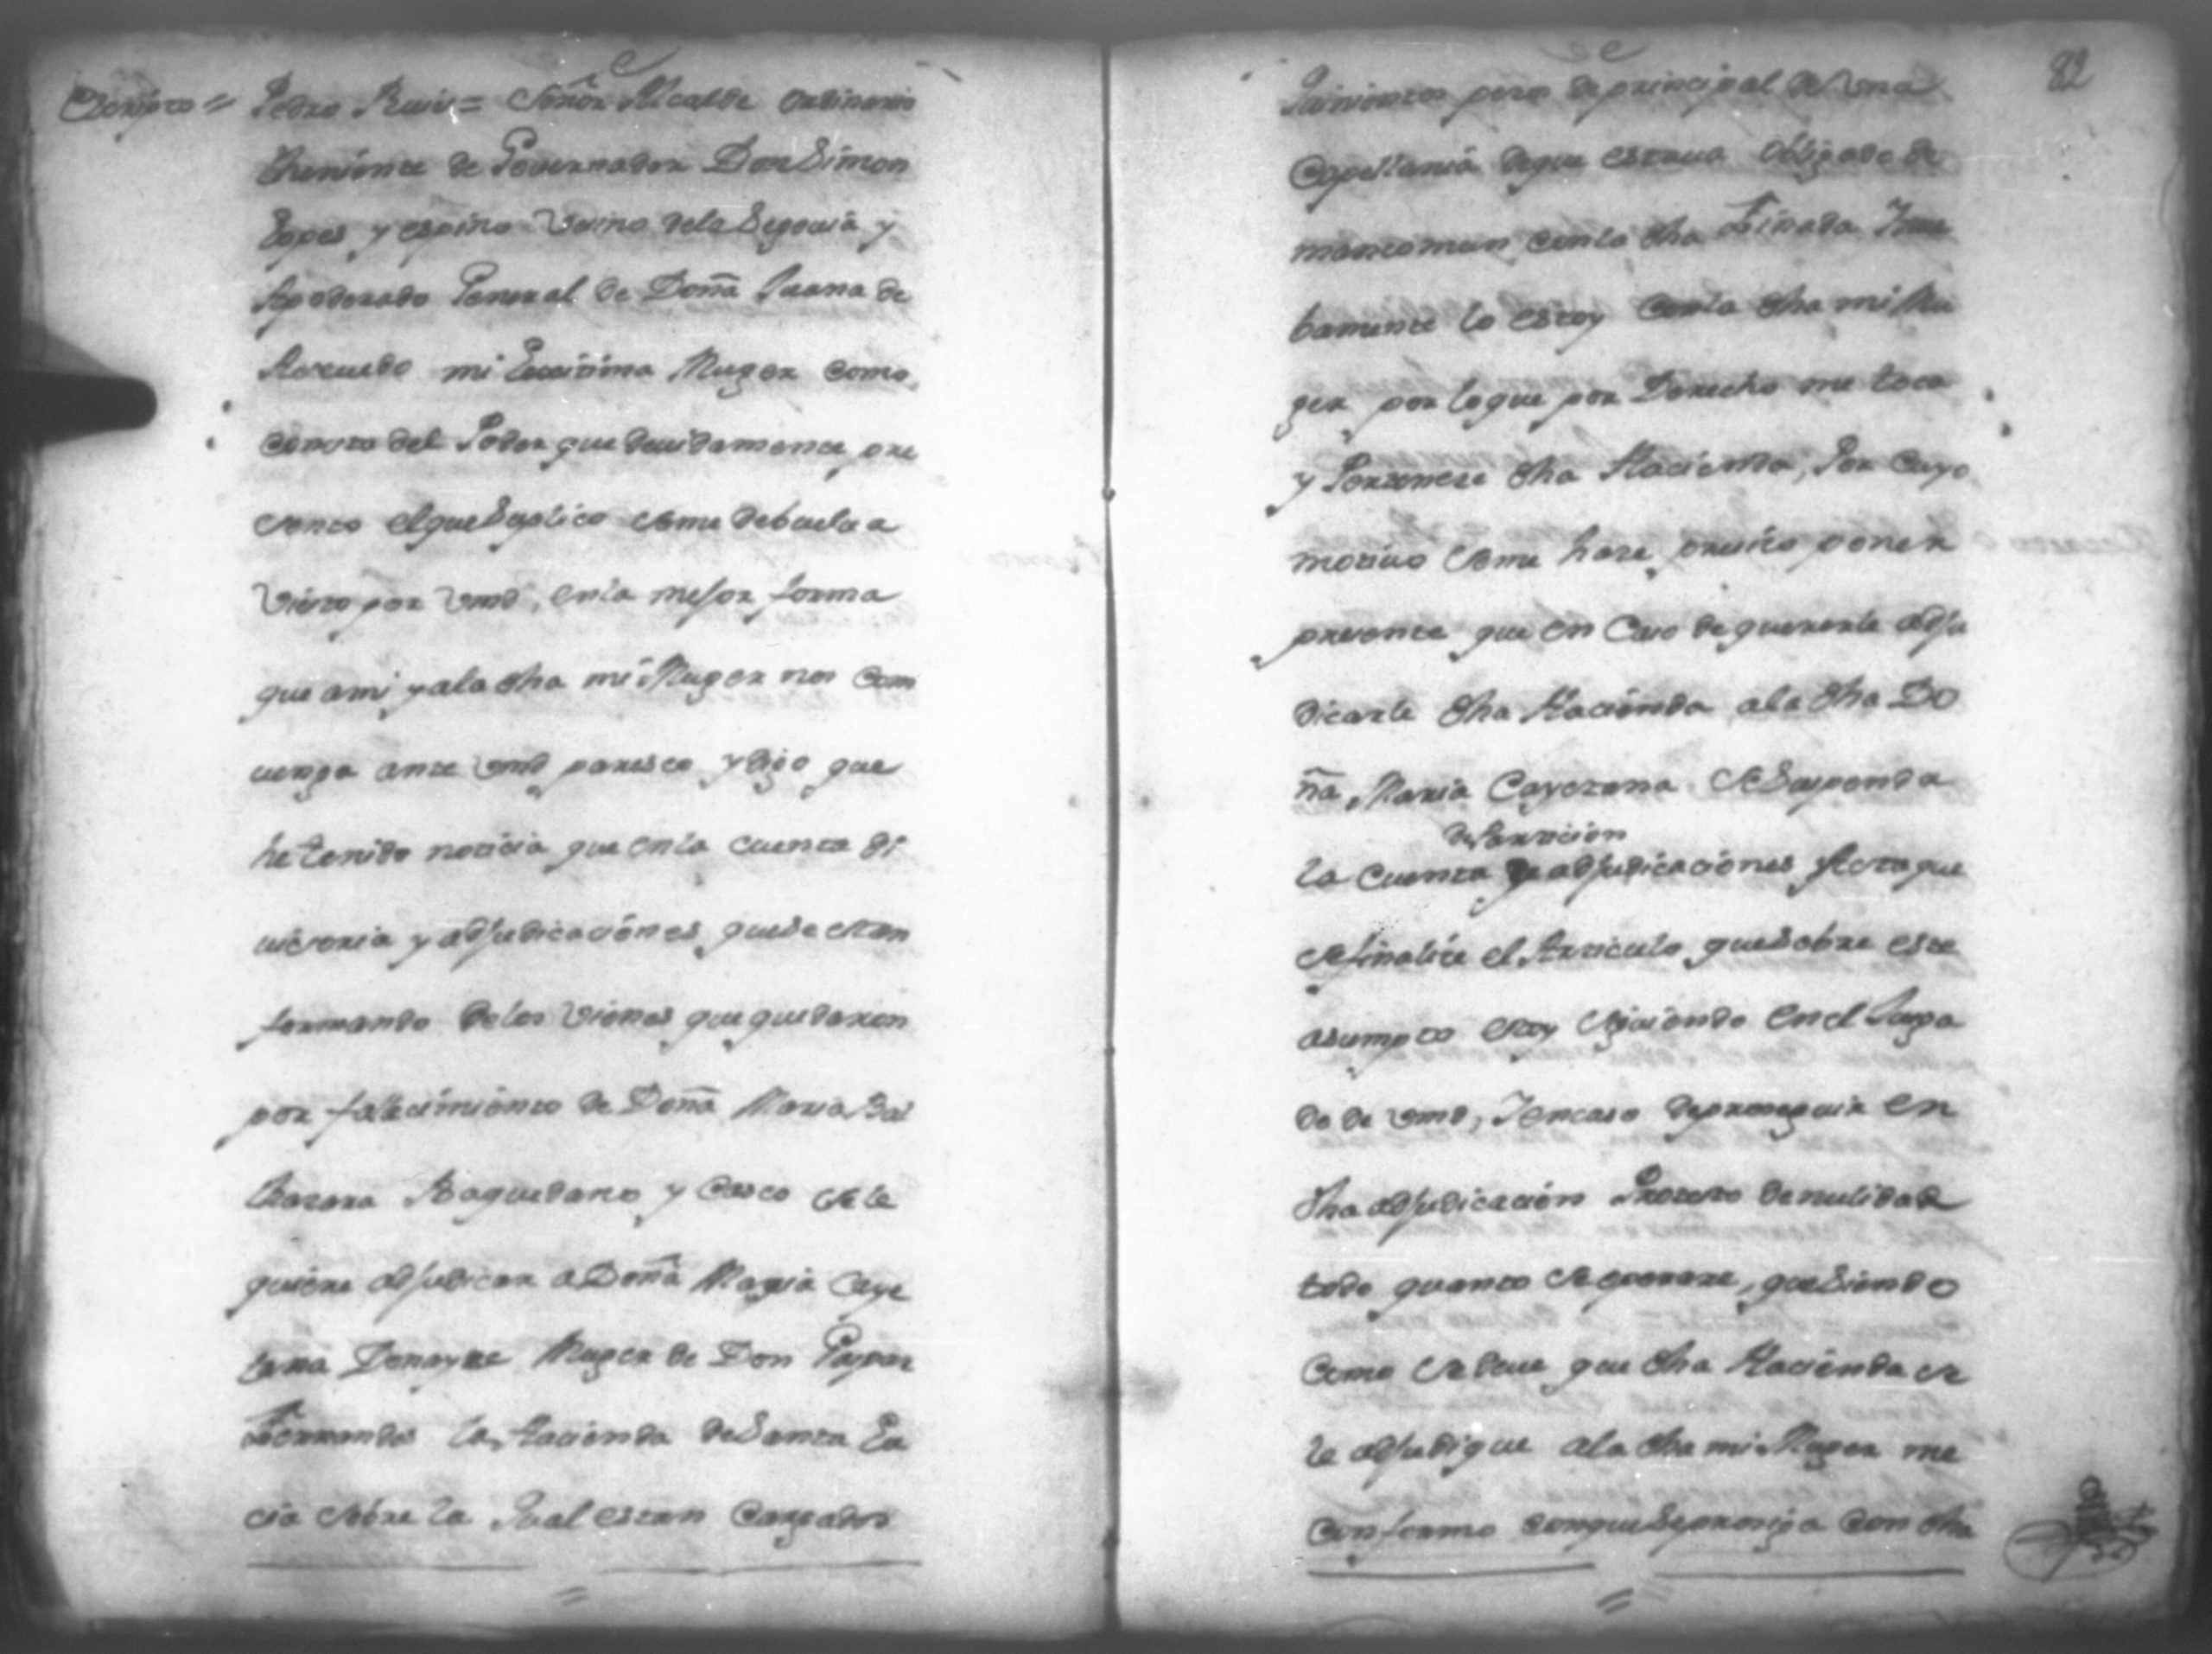 Escripto =
Pedro Ruis = Señor Alcalde ordinario
theniente de Governador Don Simon
Lopes y espino Vecino dela Segovia y
Apoderado General de Doña Juana de
Acevedo mi Lexitima Muger como
consta del Poder que devidamente pre
sento el que Suplico seme debuelva
Visto por vmd, enla mejor forma
que ami y ala dha mi Muger nos com
venga ante vmd paresco y digo que
he tenido noticia que enla cuenta di
visoria y adjudicaciónes que se estan
formando delos Vienes que quedaron
por fallecimiento de Doña Maria Bal
thazara Baquedano y Casco se le
quiere adjudicar a Doña Maria Caye
tana Donayre Muger de Don Gaspar
Fernandes la Hacienda de Santa Lu
cia sobre la Qual estan Cargados
82
Quinientos pesos de principal de Una
Capellania deque estava obligada de
mancomun con la dha Finada
bamente lo estoy con la dha mi Mu
ger por loque por Derecho me toca
y Pertenese dha Hacienda, Por Cuyo
motivo seme hase presiso poner
presente que en Caso de quererle adju
dicarle dha Hacienda ala dha Do
ña Maria Cayetana se Suspenda
de Particion
la Cuenta y adjudicaciones Asta que
se finalise el Articulo que Sobre este
asumpto estoy siguiendo En el Jusga
do de vmd, Y en caso de proseguir en
dha adjudicación Protesto de nulidad
todo quanto se operare, que Siendo
Como se deve que dha Hacienda se
le adjudique ala dha mi Muger me
Conformo conque Se prosiga Con dha